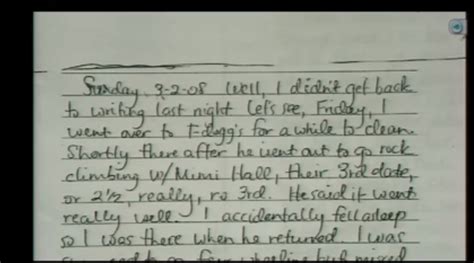 Sunday, 3-2-08 Well, I didn't get back
to writing last night Let's see, Friday, I
went over to T-dogg's for a while to clean.
Shortly there after he went out to go rock
climbing w/Mimi Hall, their 3rd date,
or 2½, really, no 3rd. He said it went
really well. I accidentally fell asleep
so I was there when he returned. I was